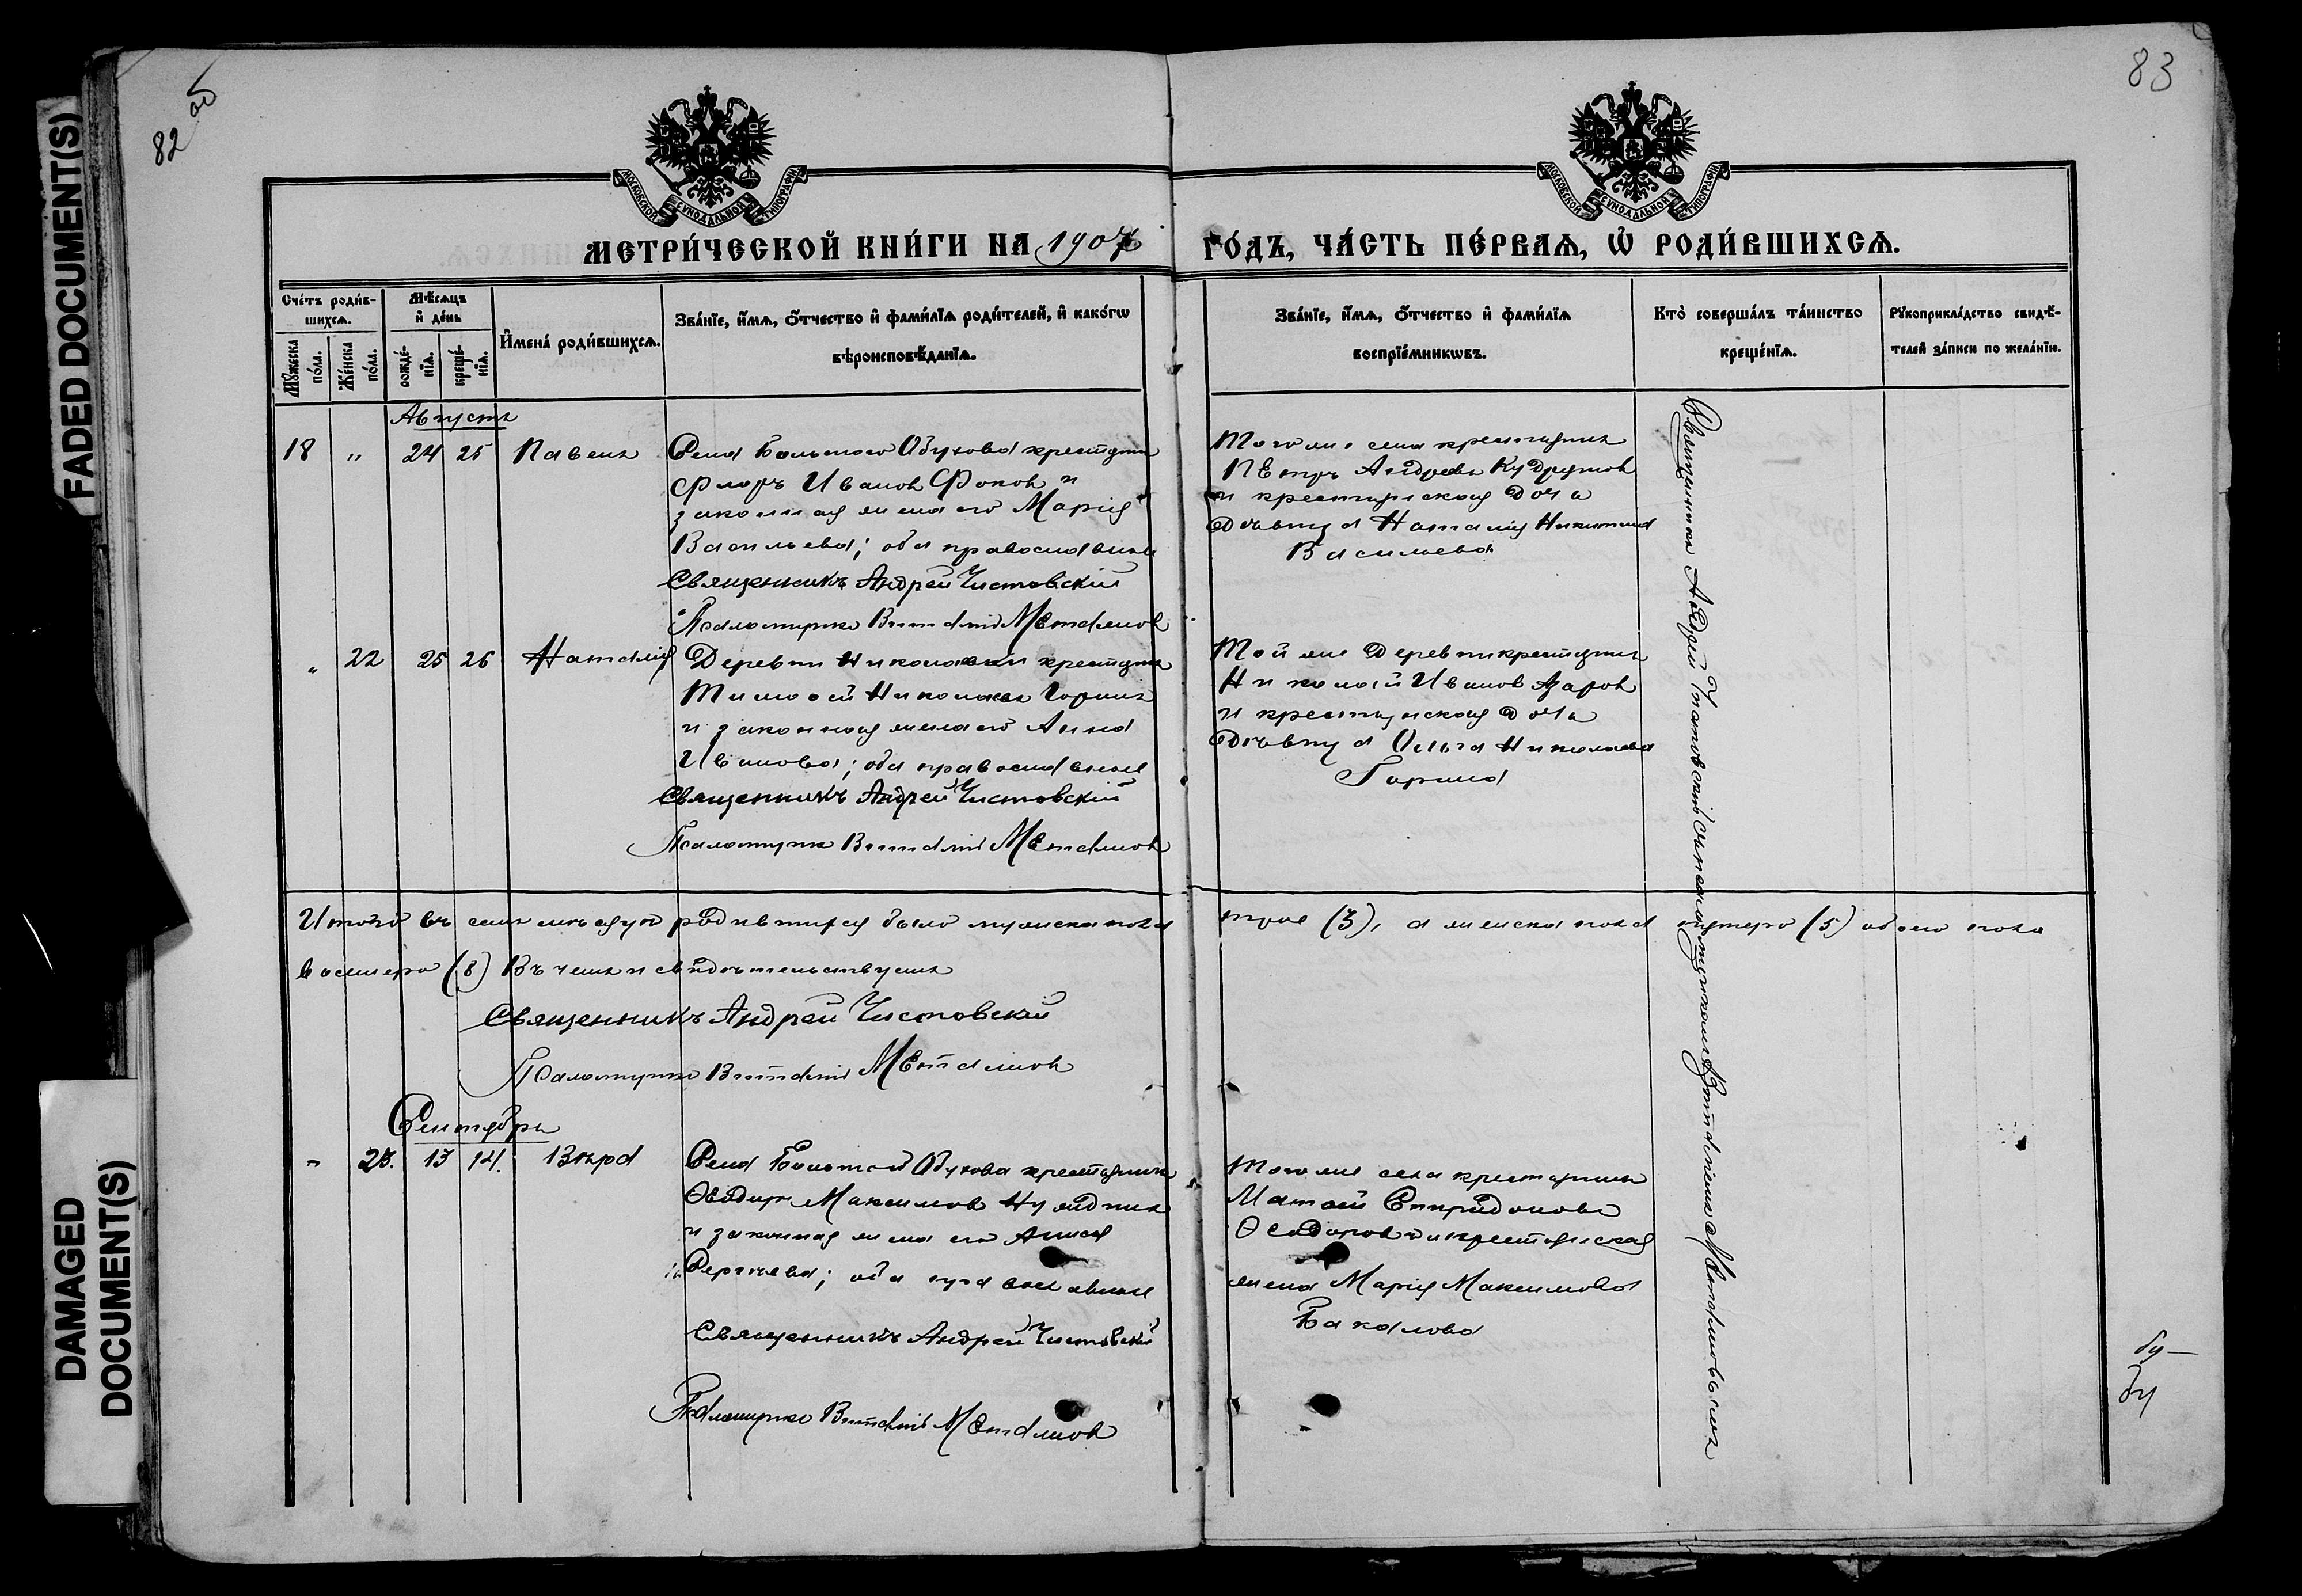 82 об
83
FADED DOCUMENT(S)
DAMAGED DOCUMENT(S)
МОСКОВСКОЙ СѴНОДАЛЬНОЙ ТИПОГРАФІИ
МОСКОВСКОЙ СѴНОДАЛЬНОЙ ТИПОГРАФІИ
МЕТРИ́ЧЕСКОЙ КНИ́ГИ НА 1907 ГО́ДЪ, ЧА́СТЬ ПЕ́РВАѦ, Ѽ РОДИ́ВШИХСѦ.
Сче́тъ роди́в-
шихсѧ.
Мꙋ́жеска по́ла.
Же́нска по́ла.
Мѣ́сѧцъ
и҆ де́нь
рожде́-
нїѧ.
креще́-
нїѧ.
И҆мена̀ роди́вшихсѧ.
Зва́нїе, и҆́мѧ, ѻ҆́тчество и҆ фами́лїѧ роди́телей, и҆ како́гѡ
вѣроисповѣ́данїѧ.
Зва́нїе, и҆́мѧ, ѻ҆́тчество и҆ фами́лїѧ
воспрїе́мникѡвъ.
Кто̀ соверша́лъ та́инство
креще́нїѧ.
Рꙋкоприкла́дство свидѣ́-
телей за́писи по жела́нїю.
Августъ
18 " 24 25 Павелъ
Села Большого Обухова крестьянинъ
Флоръ Ивановъ Фоковъ и
законная жена его Марія
Васильева; оба православные
Священникъ Андрей Чистовскій
Псаломщикъ Виталій Металловъ
Того же села крестьянинъ
Петръ Андреевъ Кудряшовъ
и крестьянская дочь
дѣвица Наталія Никитина
Васильева
" 22 25 26 Наталія
Деревни Николаевки крестьянинъ
Тимофей Николаевъ Горинъ
и законная жена его Анна
Иванова; оба православные
Священникъ Андрей Чистовскій
Псаломщикъ Виталій Металловъ
Той же деревни крестьянинъ
Николай Ивановъ Азаровъ
и крестьянская дочь
дѣвица Ольга Николаева
Горина
Священникъ Андрей Чистовскій съ псаломщикомъ Виталіемъ Металловымъ
Итого въ семъ мѣсяцѣ родившихся было мужеска пола трое (3), а женска пола пятеро (5) обоего пола
восмеро (8) Въ чемъ и свидѣтельствуемъ
Священникъ Андрей Чистовскій
Псаломщикъ Виталій Металловъ
Сентябрь
" 23. 13 14. Вѣра
Села Большой Обухова крестьянинъ
Ѳеодоръ Максимовъ
и законная жена его
Сергѣева; оба православные
Священникъ Андрей Чистовскій
Псаломщикъ Виталій Металловъ
Того же села крестьянинъ
Матѳей Спиридоновъ
Ѳеодоровъ и крестьянская
жена Марія Максимова
Бакалова